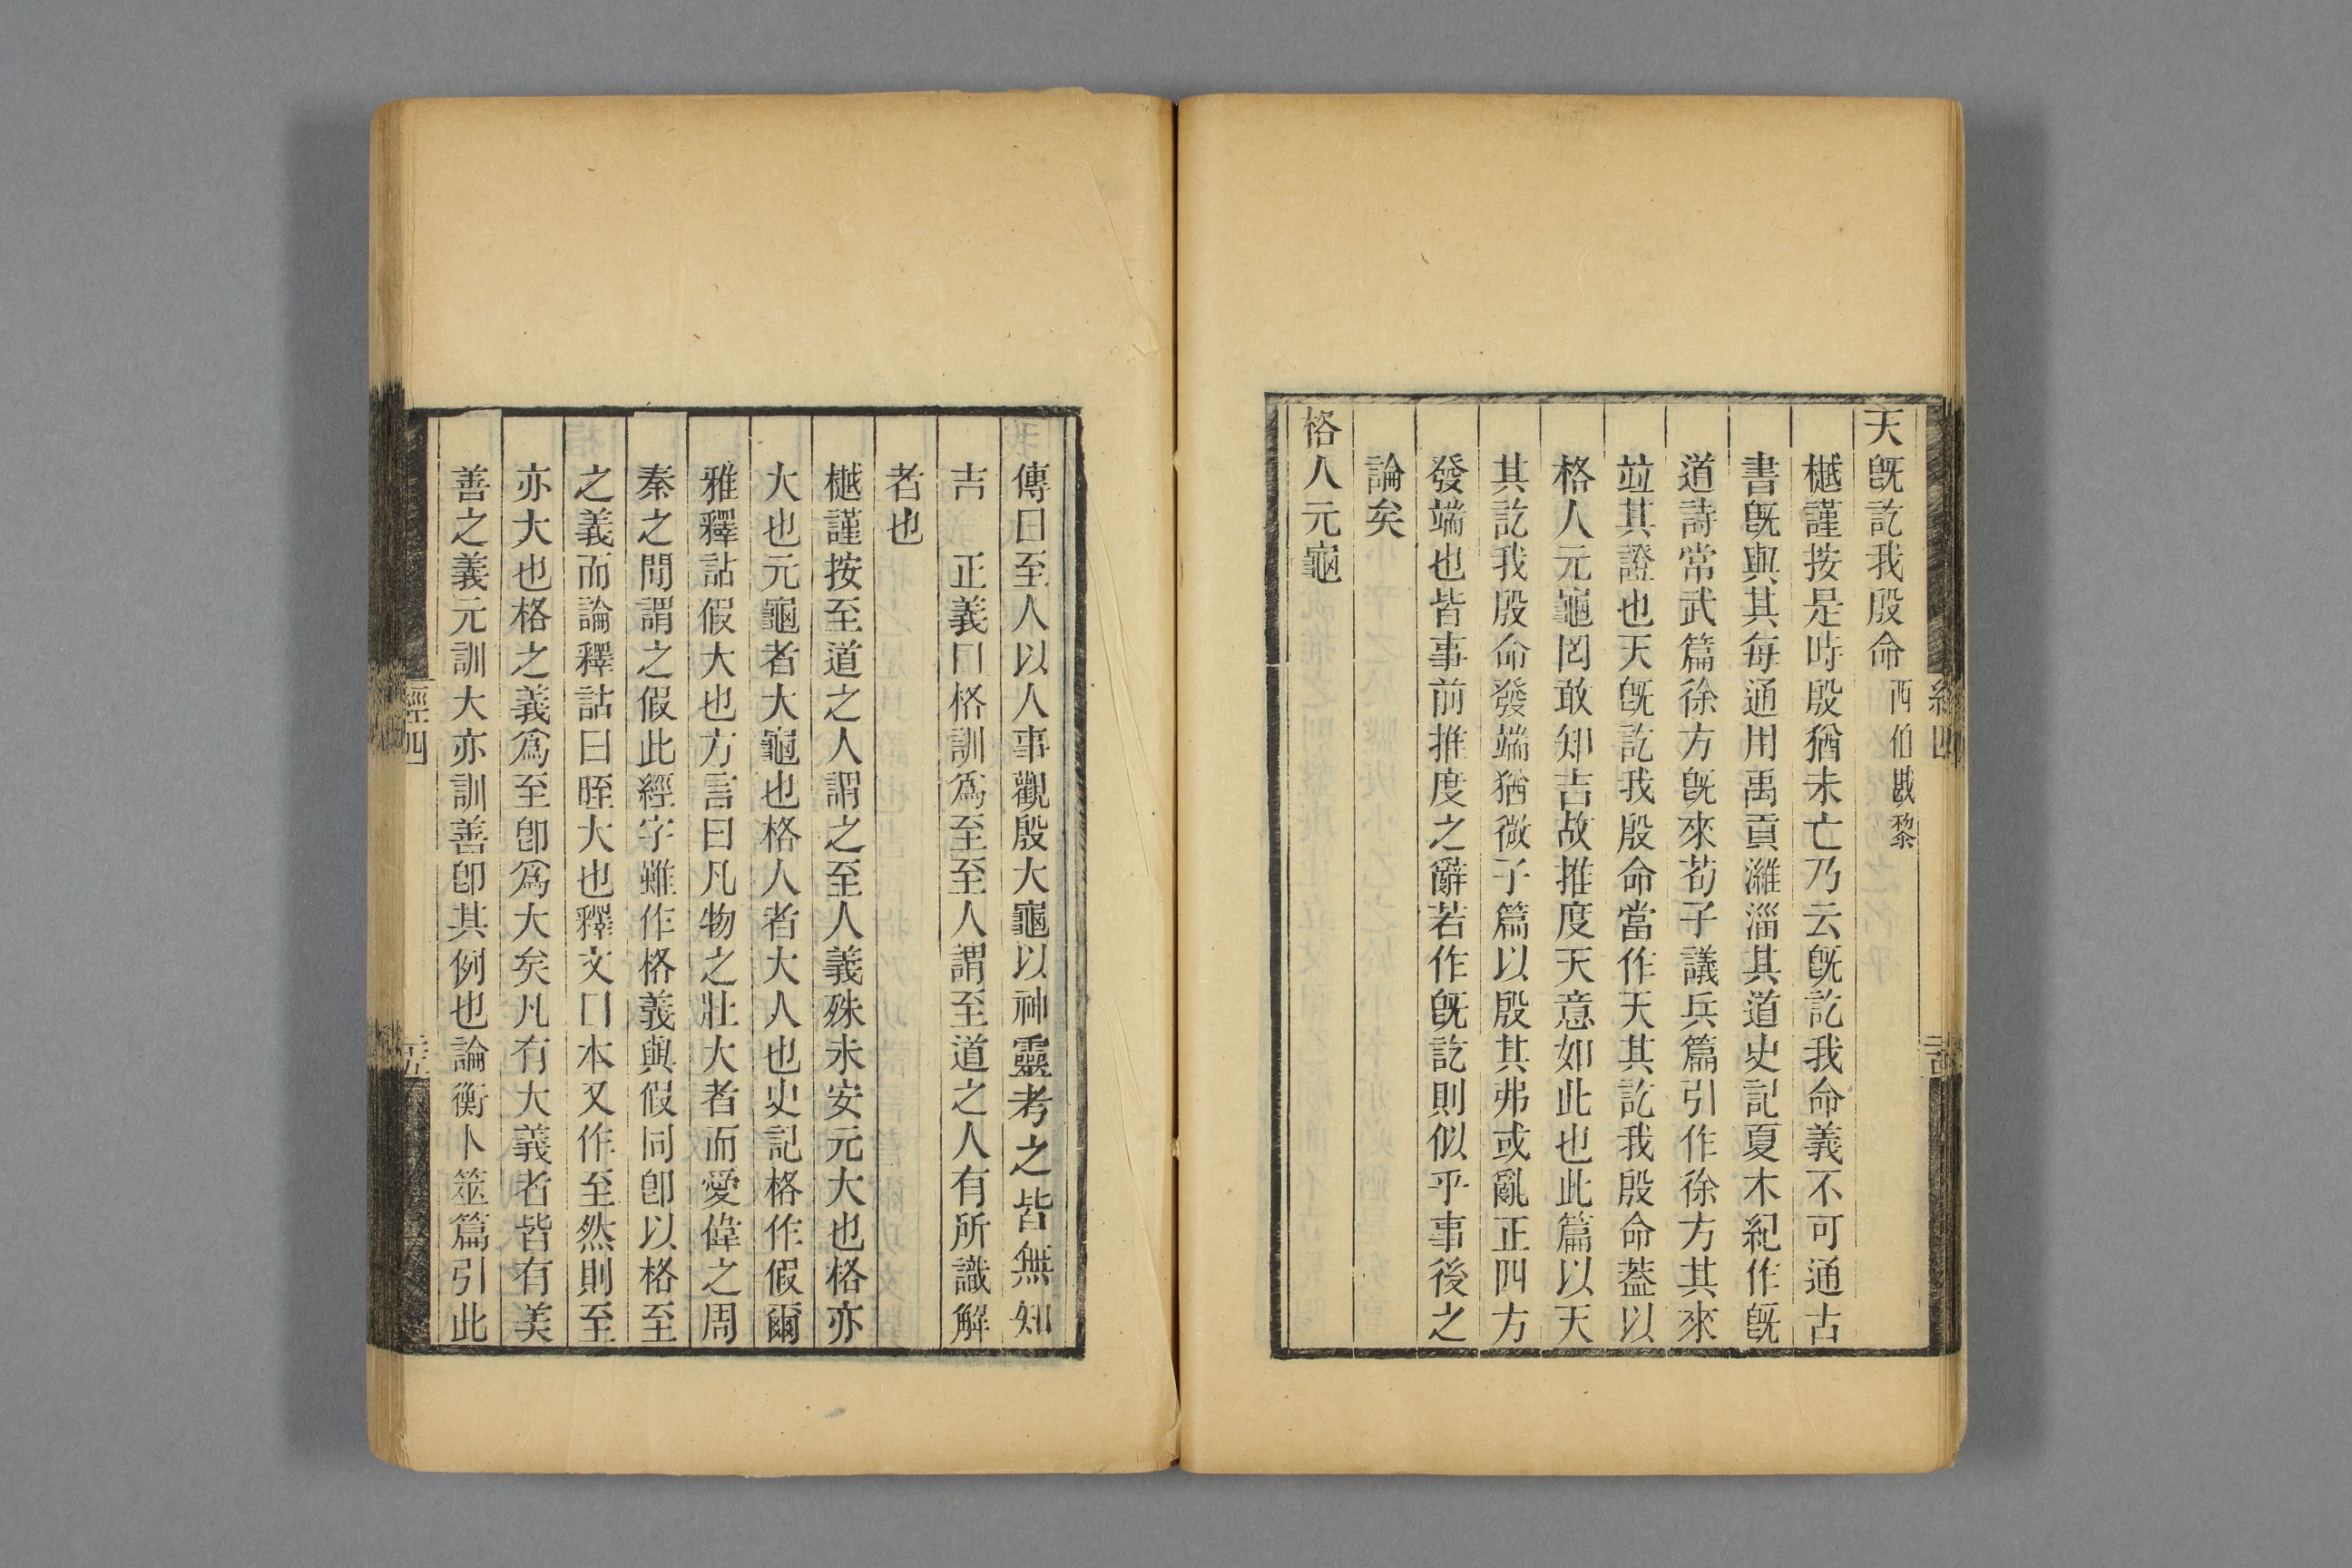 天旣訖我殷命西伯戡黎
樾謹按是時殷猶未亡乃云旣訖我命義不可通古
書旣與其每通用禹貢濰淄其道史記夏本紀作旣
道詩常武篇徐方旣來荀子議兵篇引作徐方其來
竝其證也天旣訖我殷命當作天其訖我殷命蓋以
格人元龜罔敢知吉故推度天意如此也此篇以天
其訖我殷命發端猶微子篇以殷其弗或亂正四方
發端也皆事前推度之辭若作旣訖則似乎事後之
論矣
格人元龜
傳曰至人以人事觀殷大龜以神靈考之皆無知
吉　正義曰格訓爲至至人謂至道之人有所識解
者也
樾謹按至道之人謂之至人義殊未安元大也格亦
大也元龜者大龜也格人者大人也史記格作假爾
雅釋詁假大也方言曰凡物之壯大者而愛偉之周
秦之間謂之假此經字雖作格義與假同卽以格至
之義而論釋詁曰晊大也釋文曰本又作至然則至
亦大也格之義爲至卽爲大矣凡有大義者皆有美
善之義元訓大亦訓善卽其例也論衡卜筮篇引此
經四